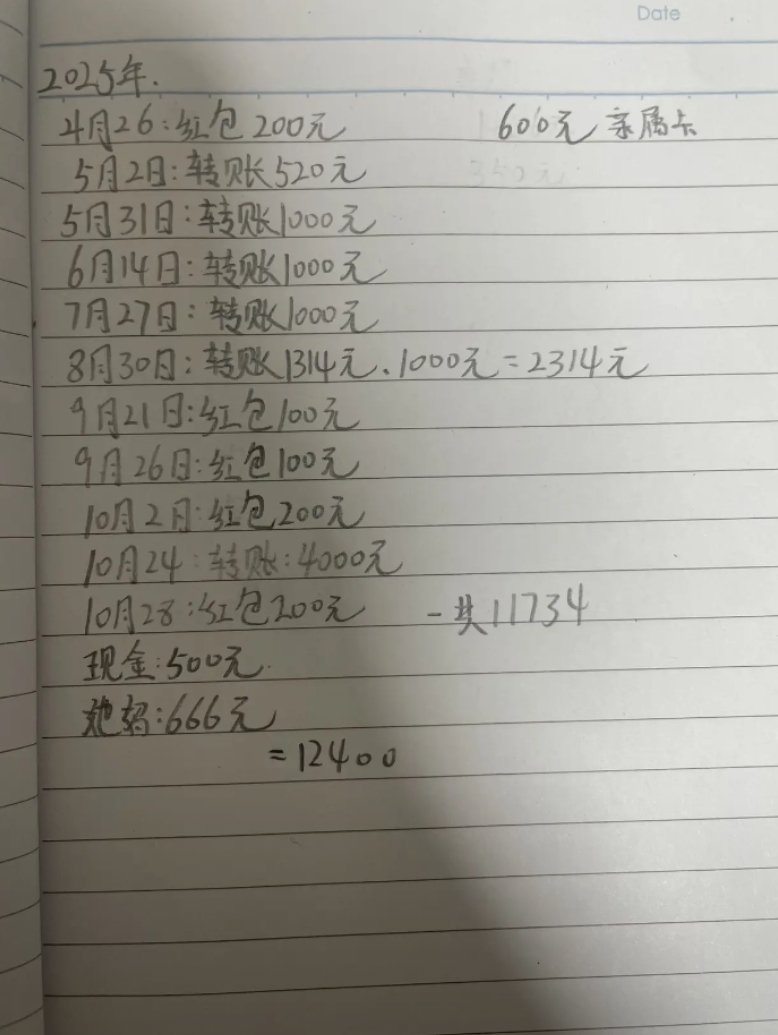 Date
2025年.
4月26:红包200元 600元 亲属卡
5月2日:转账520元
5月31日:转账1000元
6月14日:转账1000元
7月27日:转账1000元
8月30日:转账1314元、1000元=2314元
9月21日:红包100元
9月26日:红包100元
10月2日:红包200元
10月24:转账:4000元
10月28:红包200元 一共11734
现金:500元.
她妈:666元
=12400